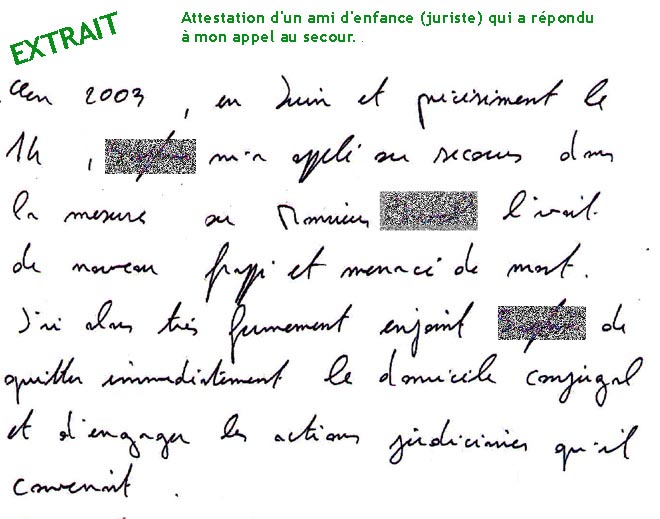 EXTRAIT
Attestation d'un ami d'enfance (juriste) qui a répondu
à mon appel au secour. .
en 2003 , en Juin et précisément le
14 , m'a appelé au secours dans
la mesure où Monsieur l'avait
de nouveau frappé et menacé de mort.
J'ai alors très fermement enjoint de
quitter immédiatement le domicile conjugal
et d'engager les actions judiciaires qu'il
convenait .